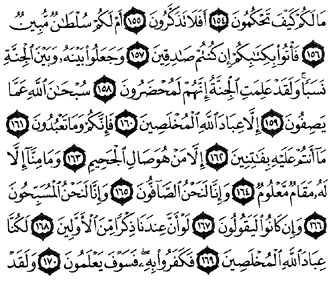 مَا لَكُمْ كَيْفَ تَحْكُمُونَ ١٥٤ أَفَلَا تَذَكَّرُونَ ١٥٥ أَمْ لَكُمْ سُلْطَٰنٌ مُّبِينٌ
١٥٦ فَأْتُوا۟ بِكِتَٰبِكُمْ إِن كُنتُمْ صَٰدِقِينَ ١٥٧ وَجَعَلُوا۟ بَيْنَهُۥ وَبَيْنَ ٱلْجِنَّةِ
نَسَبًا ۚ وَلَقَدْ عَلِمَتِ ٱلْجِنَّةُ إِنَّهُمْ لَمُحْضَرُونَ ١٥٨ سُبْحَٰنَ ٱللَّهِ عَمَّا
يَصِفُونَ ١٥٩ إِلَّا عِبَادَ ٱللَّهِ ٱلْمُخْلَصِينَ ١٦٠ فَإِنَّكُمْ وَمَا تَعْبُدُونَ ١٦١
مَآ أَنتُمْ عَلَيْهِ بِفَٰتِنِينَ ١٦٢ إِلَّا مَنْ هُوَ صَالِ ٱلْجَحِيمِ ١٦٣ وَمَا مِنَّآ إِلَّا
لَهُۥ مَقَامٌ مَّعْلُومٌ ١٦٤ وَإِنَّا لَنَحْنُ ٱلصَّآفُّونَ ١٦٥ وَإِنَّا لَنَحْنُ ٱلْمُسَبِّحُونَ
١٦٦ وَإِن كَانُوا۟ لَيَقُولُونَ ١٦٧ لَوْ أَنَّ عِندَنَا ذِكْرًا مِّنَ ٱلْأَوَّلِينَ ١٦٨ لَكُنَّا
عِبَادَ ٱللَّهِ ٱلْمُخْلَصِينَ ١٦٩ فَكَفَرُوا۟ بِهِۦ ۖ فَسَوْفَ يَعْلَمُونَ ١٧٠ وَلَقَدْ